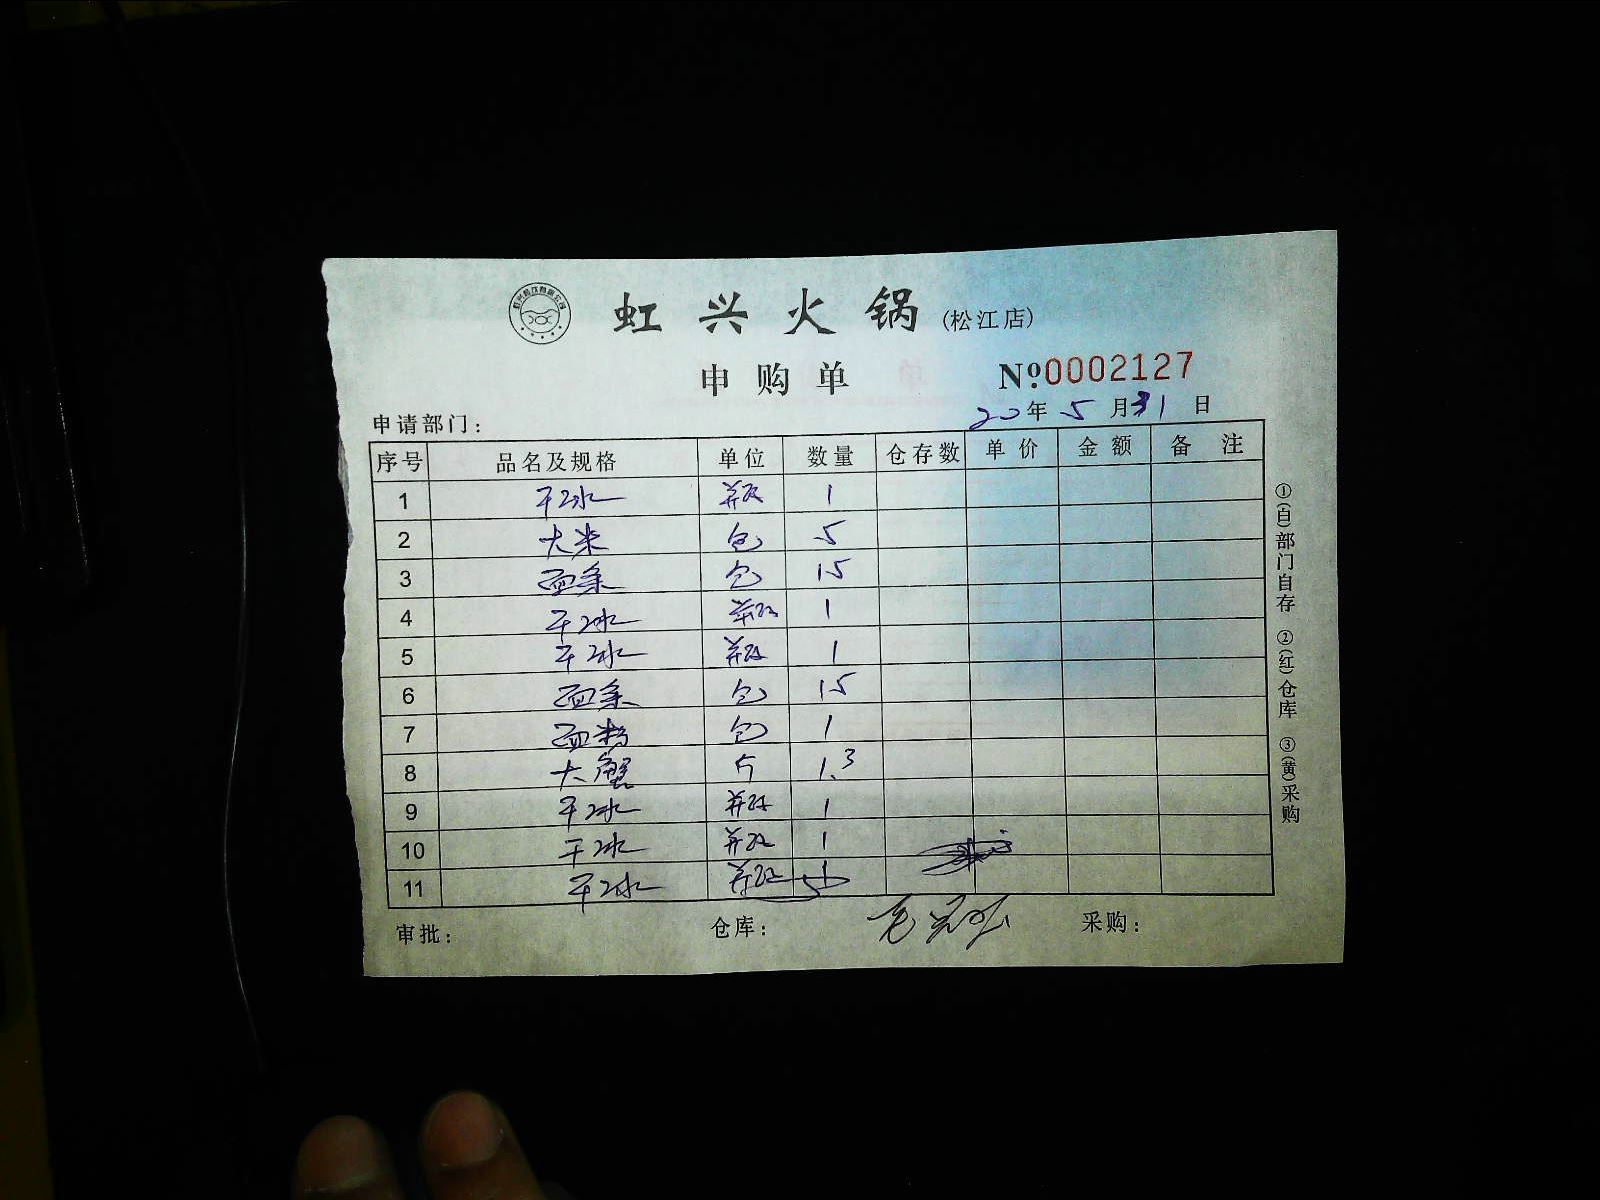 虹兴火锅(松江店)
申购单 №0002127
20年5月31日
申请部门:
序号 品名及规格 单位 数量 仓存数 单价 金额 备注
1 干冰 瓶 1
2 大米 包 5
3 面条 包 15
4 干冰 瓶 1
5 干冰 瓶 1
6 面条 包 15
7 面粉 包 1
8 大蟹 斤 1.3
9 干冰 瓶 1
10 干冰 瓶 1
11 干冰 瓶
审批: 仓库: 采购:
①(白)部门自存 ②(红)仓库 ③(黄)采购